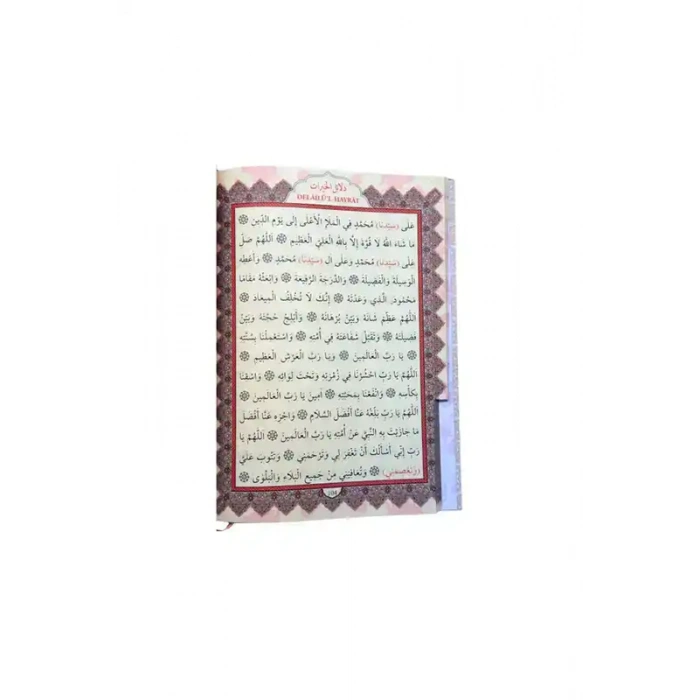 دلائل الخيرات
DELÂİLÜ'L HAYRÂT
عَلَى (سَيِّدِنَا) مُحَمَّدٍ فِي الْمَلَإِ الْأَعْلَى إِلَى يَوْمِ الدِّينِ
مَا شَاءَ اللهُ لَا قُوَّةَ إِلَّا بِاللهِ الْعَلِيِّ الْعَظِيمِ اَللّٰهُمَّ صَلِّ
عَلَى (سَيِّدِنَا) مُحَمَّدٍ وَعَلَى آلِ (سَيِّدِنَا) مُحَمَّدٍ وَأَعْطِهِ
الْوَسِيلَةَ وَالْفَضِيلَةَ وَالدَّرَجَةَ الرَّفِيعَةَ وَابْعَثْهُ مَقَامًا
مَحْمُودًا الَّذِي وَعَدْتَهُ إِنَّكَ لَا تُخْلِفُ الْمِيعَادَ
اَللّٰهُمَّ عَظِّمْ شَأْنَهُ وَبَيِّنْ بُرْهَانَهُ وَأَبْلِجْ حُجَّتَهُ وَبَيِّنْ
فَضِيلَتَهُ وَتَقَبَّلْ شَفَاعَتَهُ فِي أُمَّتِهِ وَاسْتَعْمِلْنَا بِسُنَّتِهِ
يَا رَبَّ الْعَالَمِينَ وَيَا رَبَّ الْعَرْشِ الْعَظِيمِ
اَللّٰهُمَّ يَا رَبِّ احْشُرْنَا فِي زُمْرَتِهِ وَتَحْتَ لِوَائِهِ وَاسْقِنَا
بِكَأْسِهِ وَانْفَعْنَا بِمَحَبَّتِهِ آمِينَ يَا رَبَّ الْعَالَمِينَ
اَللّٰهُمَّ يَا رَبِّ بَلِّغْهُ عَنَّا أَفْضَلَ السَّلَامِ وَاجْزِهِ عَنَّا أَفْضَلَ
مَا جَازَيْتَ بِهِ النَّبِيَّ عَنْ أُمَّتِهِ يَا رَبَّ الْعَالَمِينَ اَللّٰهُمَّ يَا
رَبِّ إِنِّي أَسْأَلُكَ أَنْ تَغْفِرَ لِي وَتَرْحَمَنِي وَتَتُوبَ عَلَيَّ
(وَتَعْصِمَنِي) وَتُعَافِيَنِي مِنْ جَمِيعِ الْبَلَاءِ وَالْبَلْوَى